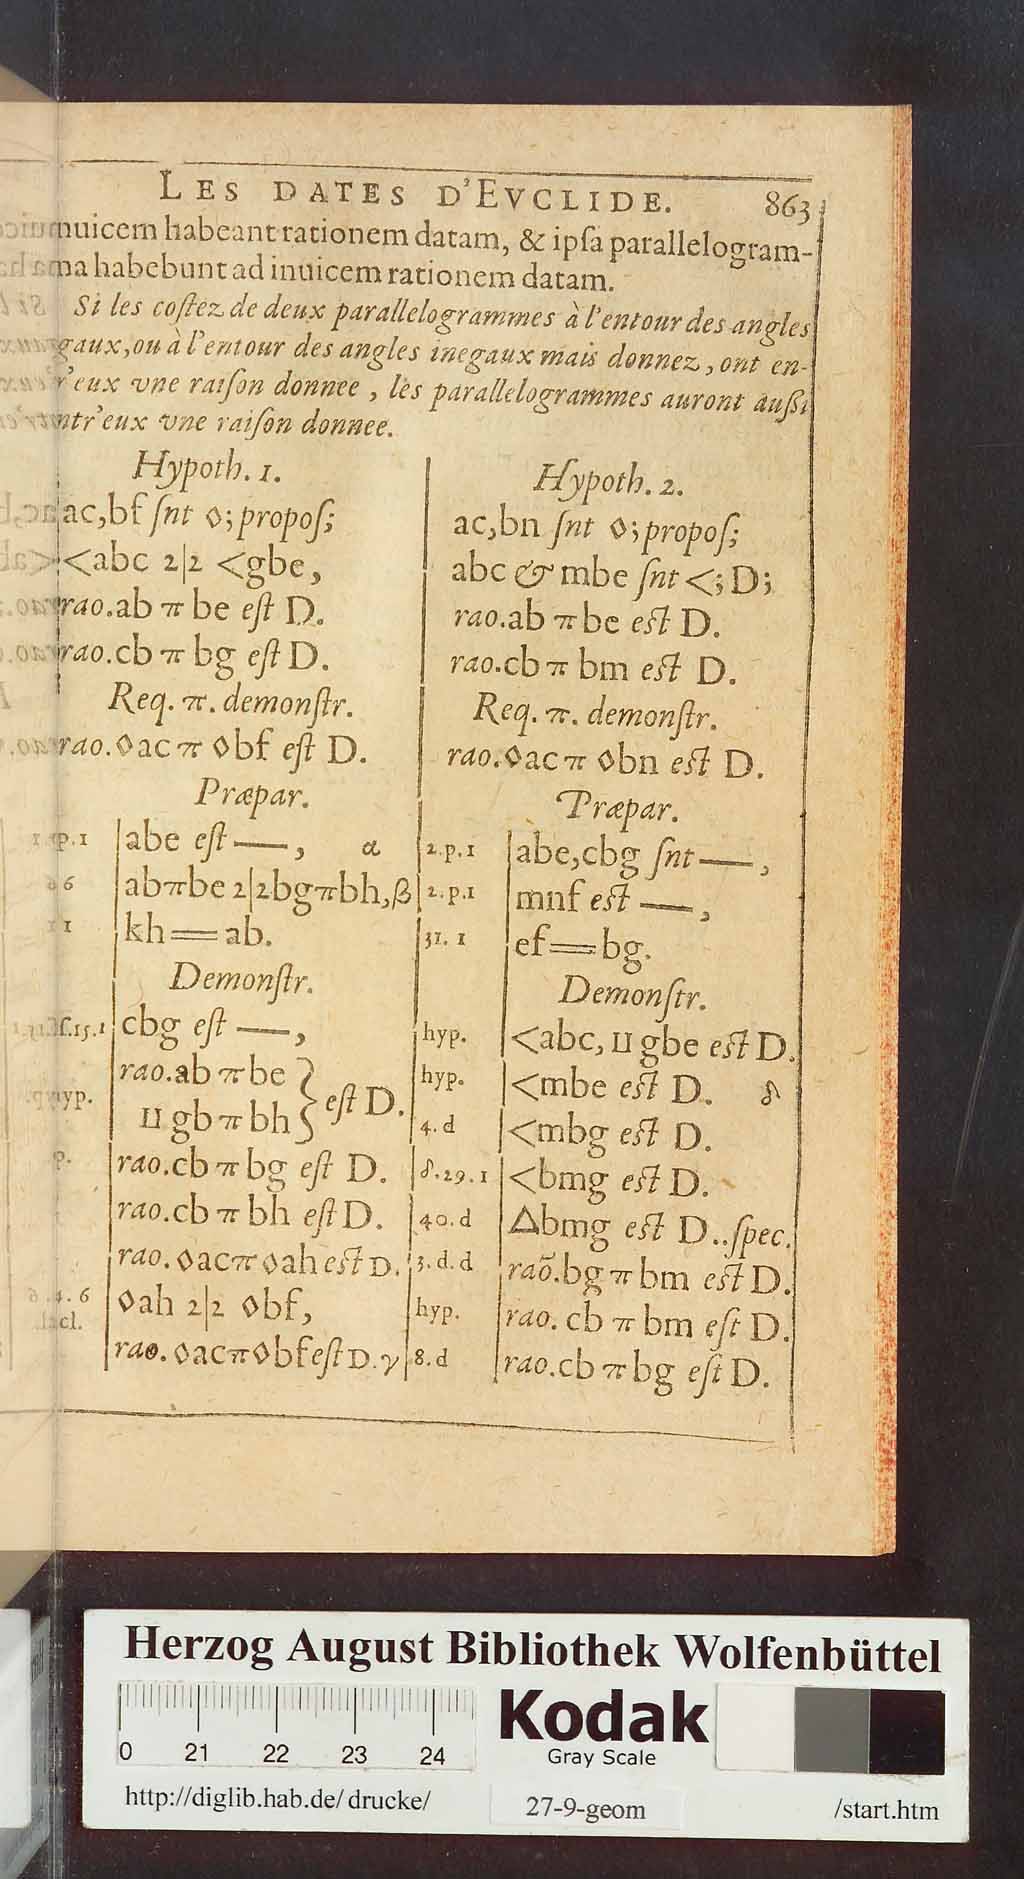 LES DATES D'EVCLIDE. 863
inuicem habeant rationem datam, & ipſa parallelogram-
ma habebunt ad inuicem rationem datam.
Si les coſtez de deux parallelogrammes à l'entour des angles
gaux, ou à l'entour des angles inegaux mais donnez, ont en-
r'eux vne raiſon donnee, les parallelogrammes auront außi
ntr'eux vne raiſon donnee.
Hypoth. 1.
ac,bf ſnt ◊; propoſ;
<abc 2|2 <gbe,
rao.ab π be eſt D.
rao.cb π bg eſt D.
Req. π. demonſtr.
rao.◊ac π ◊bf eſt D.
Præpar.
1.p.1 abe eſt —, α
6 abπbe 2|2 bgπbh, β
1 kh=ab.
Demonſtr.
ſ.15.1 cbg eſt —,
hyp. rao.ab π be } eſt D.
II gb π bh
p. rao.cb π bg eſt D.
rao.cb π bh eſt D.
rao.◊acπ◊ah eſt D.
4.6 ◊ah 2|2 ◊bf,
cl. rao.◊acπ◊bf eſt D. γ
Hypoth. 2.
ac,bn ſnt ◊; propoſ;
abc & mbe ſnt <; D;
rao.ab π be eſt D.
rao.cb π bm eſt D.
Req. π. demonſtr.
rao.◊ac π ◊bn eſt D.
Præpar.
2.p.1 abe,cbg ſnt —,
2.p.1 mnf eſt —,
31.1 ef=bg.
Demonſtr.
hyp. <abc, II gbe eſt D.
hyp. <mbe eſt D. δ
4.d <mbg eſt D.
δ.29.1 <bmg eſt D.
40.d Δbmg eſt D..ſpec.
3.d.d raõ.bg π bm eſt D.
hyp. rao.cb π bm eſt D.
8.d rao.cb π bg eſt D.
Herzog August Bibliothek Wolfenbüttel
0 21 22 23 24
Kodak
Gray Scale
http://diglib.hab.de/drucke/ 27-9-geom /start.htm